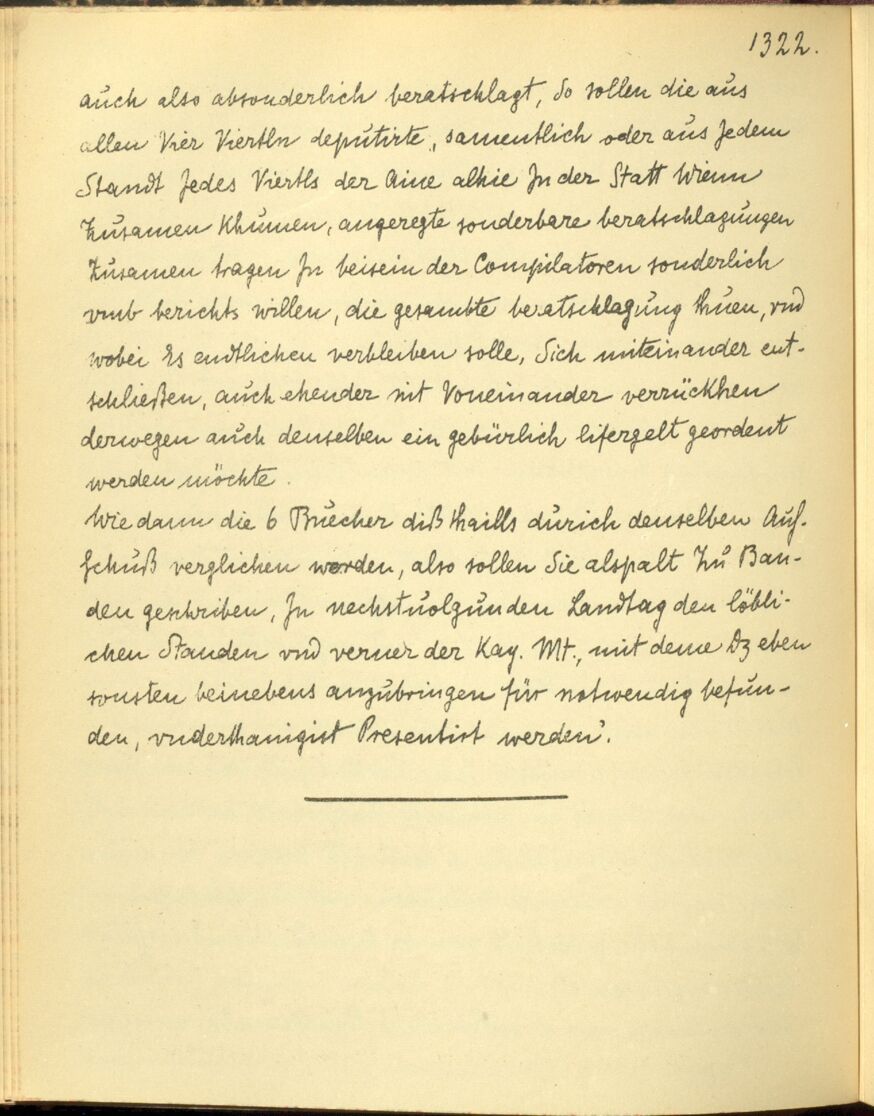 1322.
auch also absonderlich beratschlagt, So sollen die aus
allen Vier Viertln deputirte, samentlich oder aus Jedem
Standt Jedes Viertls der Aine alhie In der Statt Wienn
Zusamen Khumen, angeregte sonderbare beratschlagungen
Zusamen tragen In beisein der Compilatoren sonderlich
vmb berichts willen, die gesambte beratschlagung thuen, vnd
wobei Es endtlichen verbleiben solle, Sich miteinander ent-
schließen, auch ehender nit Voneinander verrückhen
derwegen auch denselben ein gebürlich lifergelt geordent
werden möchte.
Wie dann die 6 Buecher diß thaills durich denselben Auß-
schuß verglichen worden, also sollen Sie alspalt Zu Ban-
den geschriben, In nechstuolgunden Landtag den löbli-
chen Standen vnd verner der Kay. Mt., mit deme Dz eben
sonsten beinebens anzubringen für notwendig befun-
den, vnderthanigist Presentirt werden.